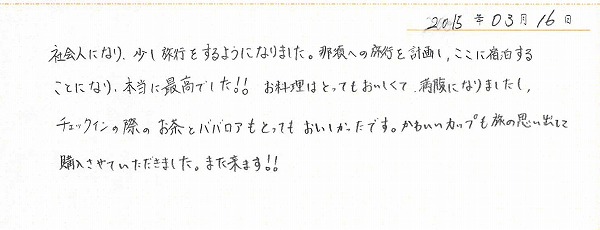 2015 年 03 月 16 日
社会人になり、少し旅行をするようになりました。那須への旅行を計画し、ここに宿泊する
ことになり、本当に最高でした!! お料理はとってもおいしくて、満腹になりましたし、
チェックインの際のお茶とババロアもとってもおいしかったです。かわいいカップも旅の思い出として
購入させていただきました。また来ます!!